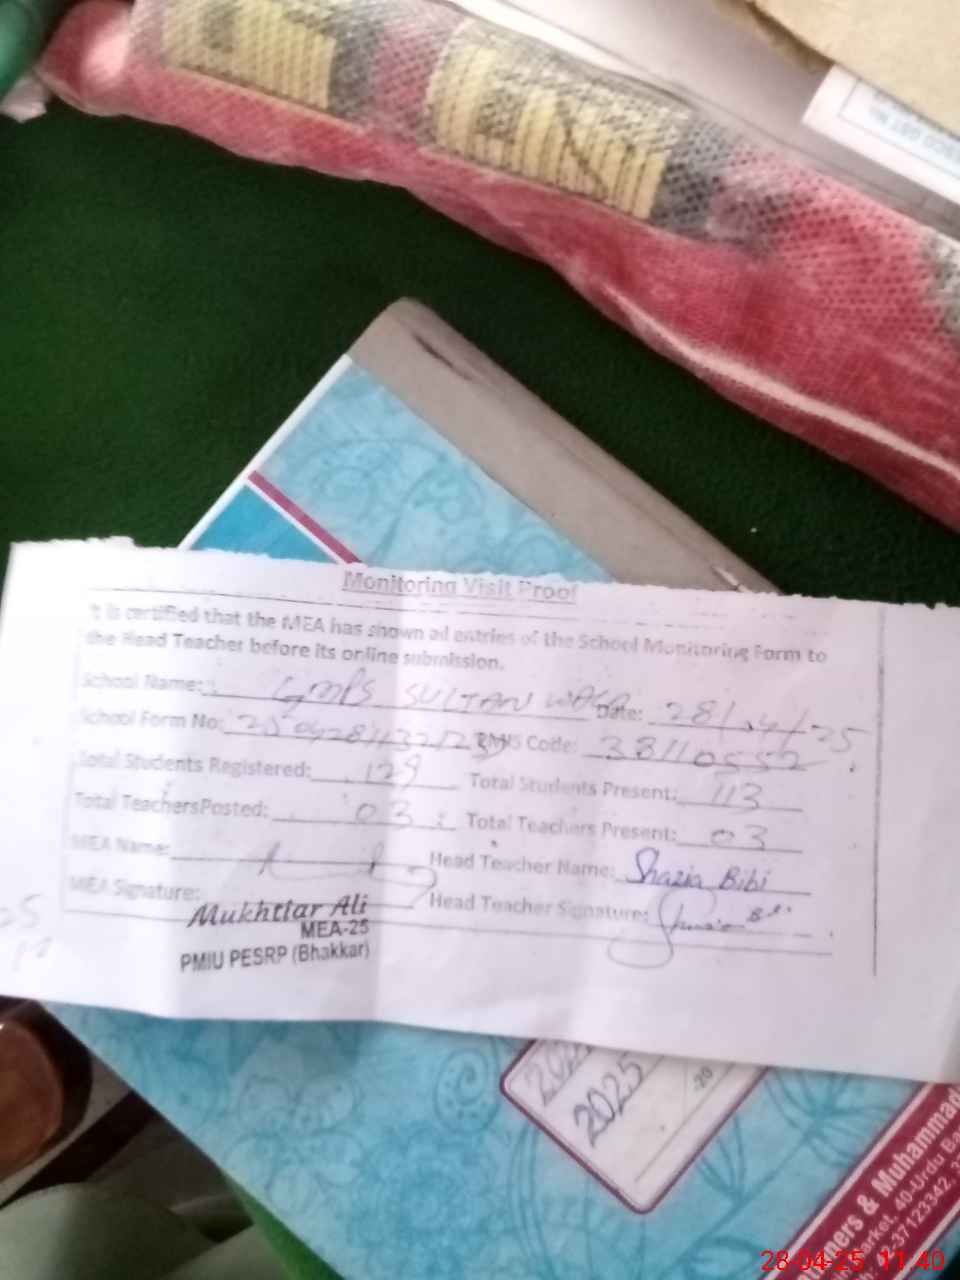 Monitoring Visit Proof
It is certified that the MEA has shown all entries of the School Monitoring Form to
the Head Teacher before its online submission.
School Name: GMPS SULTAN Date: 28/4/25
School Form No: EMIS Code: 38110552
Total Students Registered: 129 Total Students Present: 113
Total TeachersPosted: 03 Total Teachers Present: 03
MEA Name: Head Teacher Name: Shazia Bibi
MEA Signature: Head Teacher Signature:
Mukhtiar Ali
MEA-25
PMIU PESRP (Bhakkar)
2025
-20
hers & Muhammad
arket, 40-Urdu Ba
-37123342, 37
28-04-25 11:40